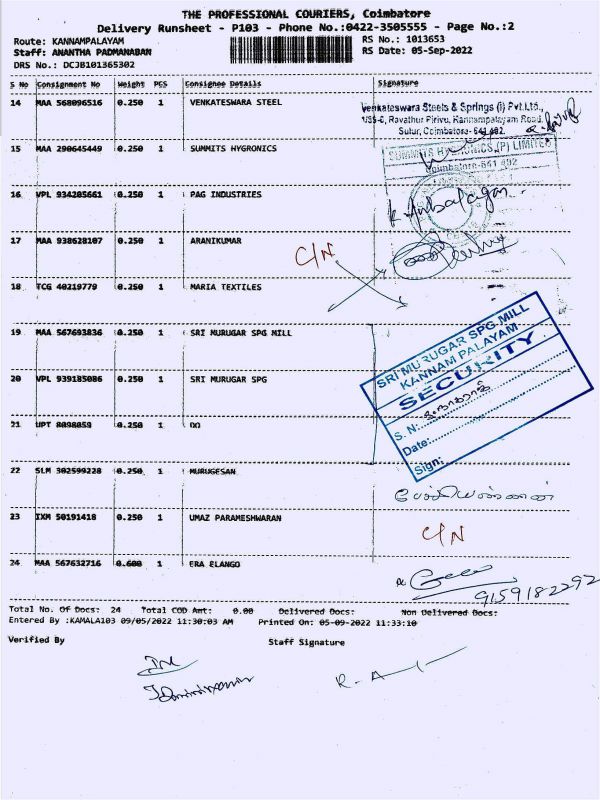 THE PROFESSIONAL COURIERS, Coimbatore
Delivery Runsheet - P103 - Phone No.:0422-3505555 - Page No.:2
Route: KANNAMPALAYAM RS No.: 1013653
Staff: ANANTHA PADMANABAN RS Date: 05-Sep-2022
DRS No.: DCJB101365302
S No Consignment No Weight PCS Consignee Details Signature
14 MAA 568096516 0.250 1 VENKATESWARA STEEL
Venkateswara Steels & Springs (I) Pvt.Ltd.,
Ravathur Pirivu, Kannampalayam Road,
Sulur, Coimbatore-641 402.
15 MAA 290645449 0.250 1 SUMMITS HYGRONICS
SUMMITS HYGRONICS (P) LIMITED
Coimbatore-641 402
16 VPL 934205661 0.250 1 PAG INDUSTRIES
17 MAA 938628107 0.250 1 ARANIKUMAR
C/N
18 TCG 40219779 0.250 1 MARIA TEXTILES
19 MAA 567693836 0.250 1 SRI MURUGAR SPG MILL
SRI MURUGAR SPG.MILL
KANNAM PALAYAM
SECURITY
S. N:
Date:
Sign:
20 VPL 939185086 0.250 1 SRI MURUGAR SPG
21 UPT 8098059 0.250 1 DO
22 SLM 302599228 0.250 1 MURUGESAN
23 IXM 50191418 0.250 1 UMAZ PARAMESHWARAN
C/N
24 MAA 567632716 0.600 1 ERA ELANGO
9159182292
Total No. Of Docs: 24 Total COD Amt: 0.00 Delivered Docs: Non Delivered Docs:
Entered By :KAMALA103 09/05/2022 11:30:03 AM Printed On: 05-09-2022 11:33:10
Verified By Staff Signature
R. A